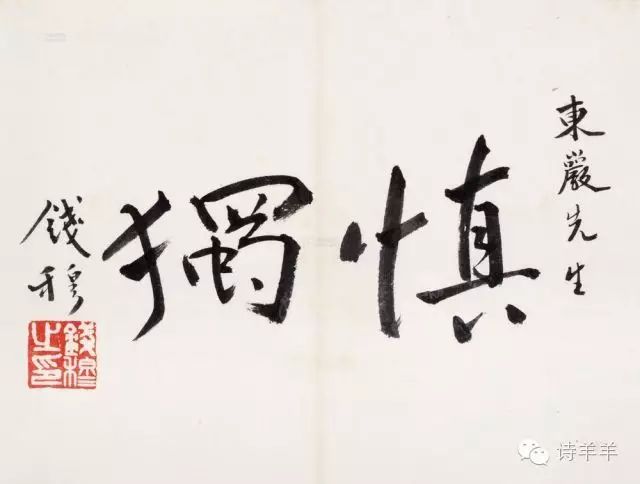 東嚴先生
慎獨
錢穆
錢穆之印
诗羊羊